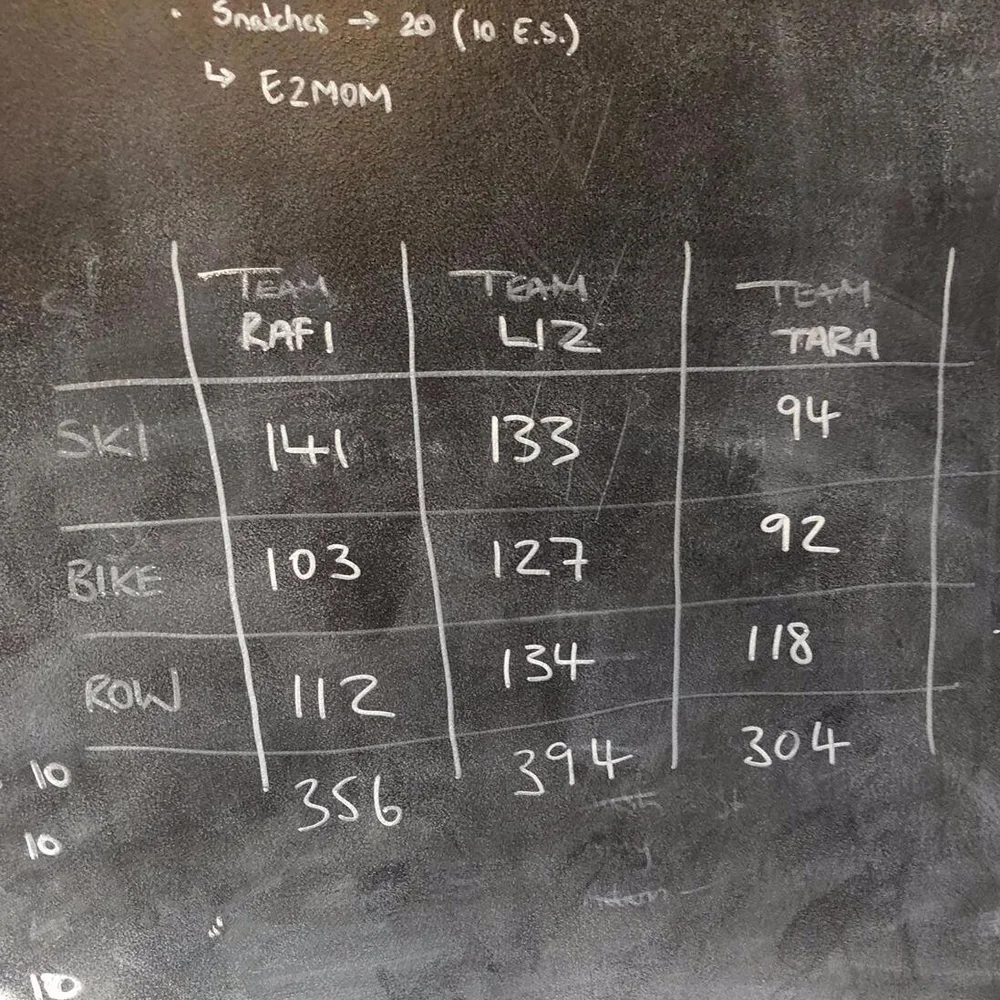 • Snatches → 20 (10 E.S.)
↳ E2MOM
TEAM RAFI TEAM LIZ TEAM TARA
SKI 141 133 94
BIKE 103 127 92
ROW 112 134 118
356 394 304
10
10